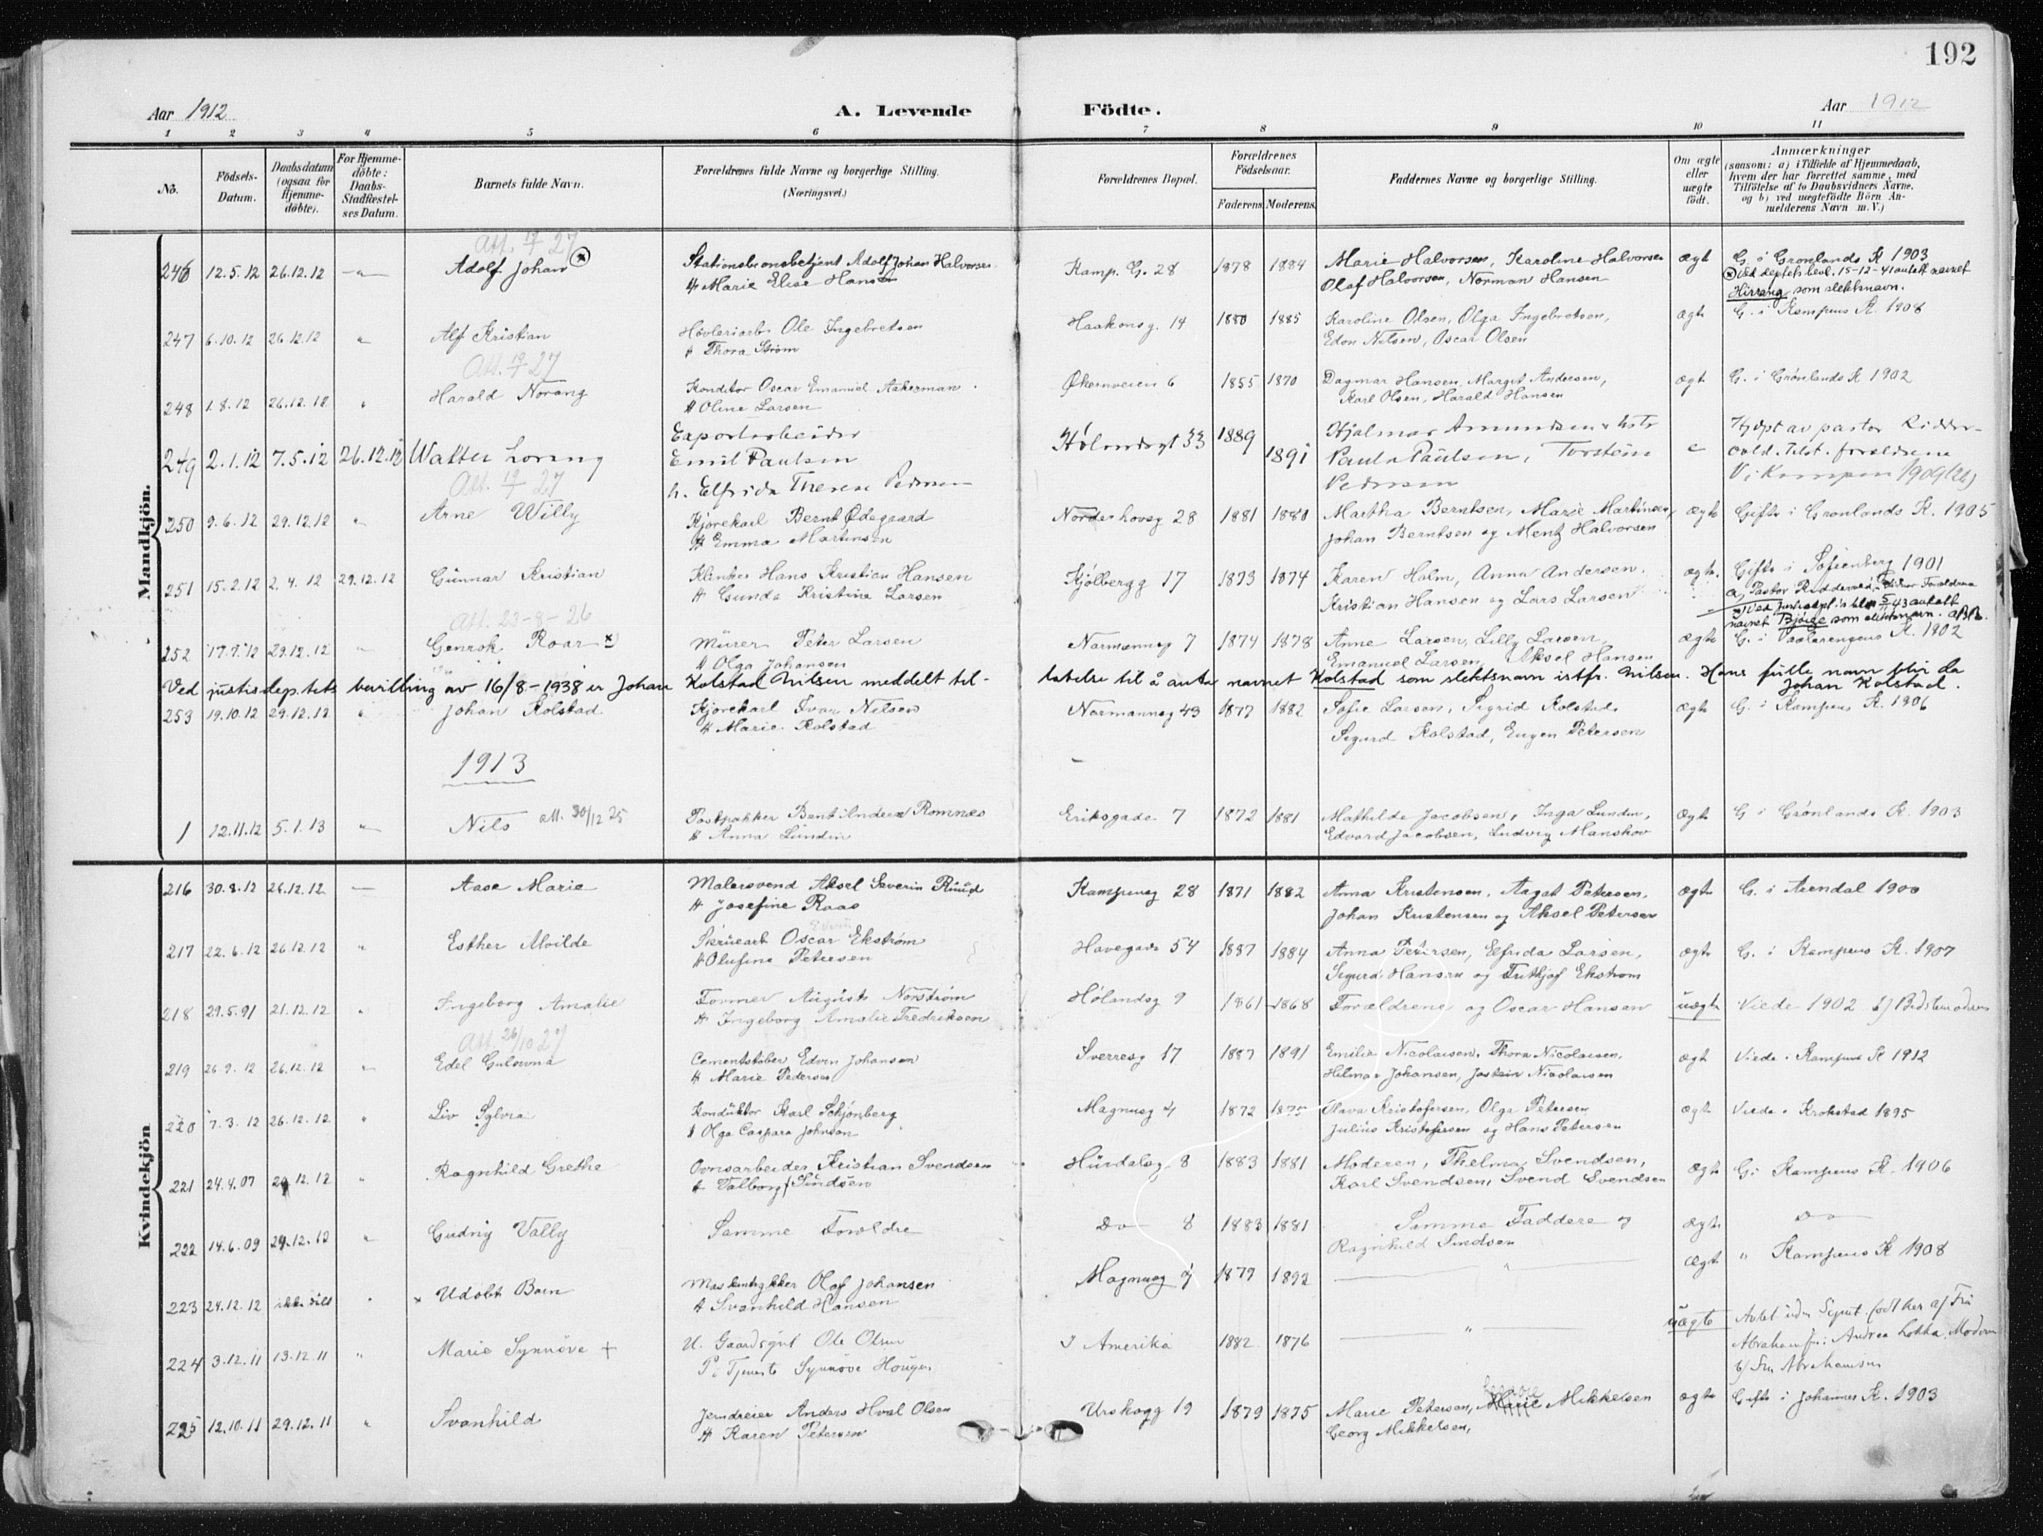 192
Aar 1912 A. Levende Födte. Aar 1912
1 2 3 4 5 6 7 8 9 10 11
No.
Födsels-Datum.
Daabsdatum (ogsaa for Hjemme-döbte).
For Hjemme-döbte: Daabs-Stadfæstel-ses Datum.
Barnets fulde Navn.
Forældrenes fulde Navne og borgerlige Stilling. (Næringsvei.)
Forældrenes Bopæl.
Forældrenes Födselsaar.
Faderens. Moderens.
Faddernes Navne og borgerlige Stilling.
Om ægte eller uægte födt.
Anmærkninger
(saasom: a) i Tilfælde af Hjemmedaab, hvem der har forrettet samme, med Tilföielse af to Daabsvidners Navne, og b) ved uægtefödte Börn An-melderens Navn m. V.)
Mandkjön.
Att. 27
246 12.5.12 26.12.12 — Adolf Johan Stationsbetjent Adolf Johan Halvorsen Kamp. G. 28 1878 1884 Marie Halvorsen, Karoline Halvorsen ægt G. i Grønlands K 1903
& Marie Elise Hansen Olaf Halvorsen, Norman Hansen Ved deptets bevl. 15-12-41 antatt navnet
Hirrang som slektsnavn.
247 6.10.12 26.12.12 " Alf Kristian Høvleriarb. Ole Ingebretsen Haakonsg. 14 1880 1885 Karoline Olsen, Olga Ingebretsen, ægt G. i Kampens K. 1908
& Thora Strøm Edon Nilsen, Oscar Olsen
Att. 27
248 1.8.12 26.12.12 " Harald Norang Konditor Oscar Emanuel Askerman Økernveien 6 1855 1870 Dagmar Hansen, Margit Andersen, ægt G. i Grønlands K 1902
& Oline Larsen Karl Olsen, Harald Hansen
249 2.1.12 7.5.12 26.12.12 Walter Lorang Exportarbeider Emil Paulsen Hølandsgt 33 1889 1891 Hjalmar Amundsen & hstr
h. Elfrida Therese Pedersen Paula Paulsen, Torstein Pedersen Hjdpt av pastor Ridder-
vold. Tilst. forældrene
V i Kampen 1909
Att. 27
250 9.6.12 29.12.12 " Arne Willy Kjørekarl Bernt Ødegaard Nordershovsg 28 1881 1880 Martha Berntsen, Marie Martinsen, ægte Gifte i Grønlands K. 1905
& Emma Martinsen Johan Berntsen og Mentz Halvorsen
251 15.2.12 2.4.12 29.12.12 Gunnar Kristian Klinker Hans Kristian Hansen Kjølbergg 17 1873 1874 Karen Holm, Anna Andersen. ægte. Gifte i Sofienberg 1901
& Gunda Kristine Larsen Kristian Hansen og Lars Larsen a) Pastor Riddervold,
Att. 23-8-26
Ved 5/11 43 antatt
navnet Bjørge som slektsnavn.
252 17.9.12 29.12.12 " Roar x Murer Peter Larsen Normannsg 7 1874 1878 Anne Larsen, Lilly Larsen, ægte G. i Vaalerengens K. 1902
& Olga Johansen Emanuel Larsen, Aksel Hansen
Ved justisdeptets bevilling av 16/8-1938 er Johan Kolstad Nilsen meddelt til-latelse til å anta navnet Kolstad som slektsnavn istf. Nilsen. Hans fulle navn blir da
Johan Kolstad.
253 19.10.12 29.12.12 " Johan Kolstad. Kjørekarl Ivar Nilsen Normannsg 43 1877 1882 Sofie Larsen, Sigrid Kolstad, ægt G. i Kampens K. 1906
& Marie Kolstad Sigurd Kolstad, Eugen Petersen
1913
1 12.11.12 5.1.13 " Nils att. 30/12 25 Postpakker Bent Andersen Romnes Eriksgade 7 1872 1881 Mathilde Jacobsen, Inga Lundin, ægt G i Grønlands K. 1903
& Anna Lundin Edvard Jacobsen, Ludvig Manskov
Kvindekjön
216 30.8.12 26.12.12 — Aase Marie Malersvend Aksel Severin Ruud Kampensg 28 1871 1882 Anna Kristensen, Aagot Petersen, ægt G. i Arendal 1900
& Josefine Raas Johan Kristensen og Aksel Petersen
217 22.6.12 26.12.12 " Esther Alvilde Skruearb Oscar Ekstrøm Havegade 54 1887 1884 Anna Petersen, Elfrida Larsen, ægt G. i Kampens K. 1907
& Olufine Petersen Sigurd Hansen og Fritjof Ekstrøm
218 29.5.91 21.12.12 " Ingeborg Amalie Former August Norstrøm Hølandsg 9 1861 1868 Forældrene og Oscar Hansen uægte Viede 1902 b) Bedstemoderen
& Ingeborg Amalie Fredriksen
Att. 26/10 27
219 26.9.12 26.12.12 " Edel Gulowna Cementstøber Edvin Johansen Sverresg 17 1887 1891 Emilie Nicolaisen, Thora Nicolaisen, ægt Viede i Kampens K 1912
& Marie Pedersen Hilmar Johansen, Jostein Nicolaisen
220 7.3.12 26.12.12 " Liv Sylvia Konduktør Karl Schjønberg Magnusg 4 1872 1875 Olava Kristofersen, Olga Petersen ægt Viede i Krokstad 1895
& Olga Caspara Johnson Julius Kristofersen og Hans Petersen
221 24.4.07 29.12.12 " Ragnhild Grethe Ovnsarbeider Kristian Svendsen Hurdalsg. 8 1883 1881 Moderen, Thelma Svendsen, ægt G i Kampens K. 1906
& Valborg Sundsen Karl Svendsen, Svend Svendsen
222 14.6.09 29.12.12 " Gudny Vally Samme Forældre Do 8 1883 1881 Samme Faddere og ægt Do
Ragnhild Svendsen
223 24.12.12 ikke døbt " x Udøbt Barn Maskintrykker Olaf Johansen Magnusg 7 1877 1892 — " — ægt " Kampens K 1908
& Svanhild Hansen
224 3.12.11 13.12.11 " Marie Synnøve + U. Gaardsgut Ole Olsen I Amerika 1882 1876 — " — uægte
P. Tjeneste Synnøve Hougen
b) Fru Abrahamsen
225 12.10.11 29.12.11 " Svanhild Jerndreier Anders Hval Olsen Urskogg 19 1879 1875 Marie Petersen, Marie Mikkelsen ægte Gifte i Johannes K. 1903
& Karen Petersen Georg Mikkelsen,